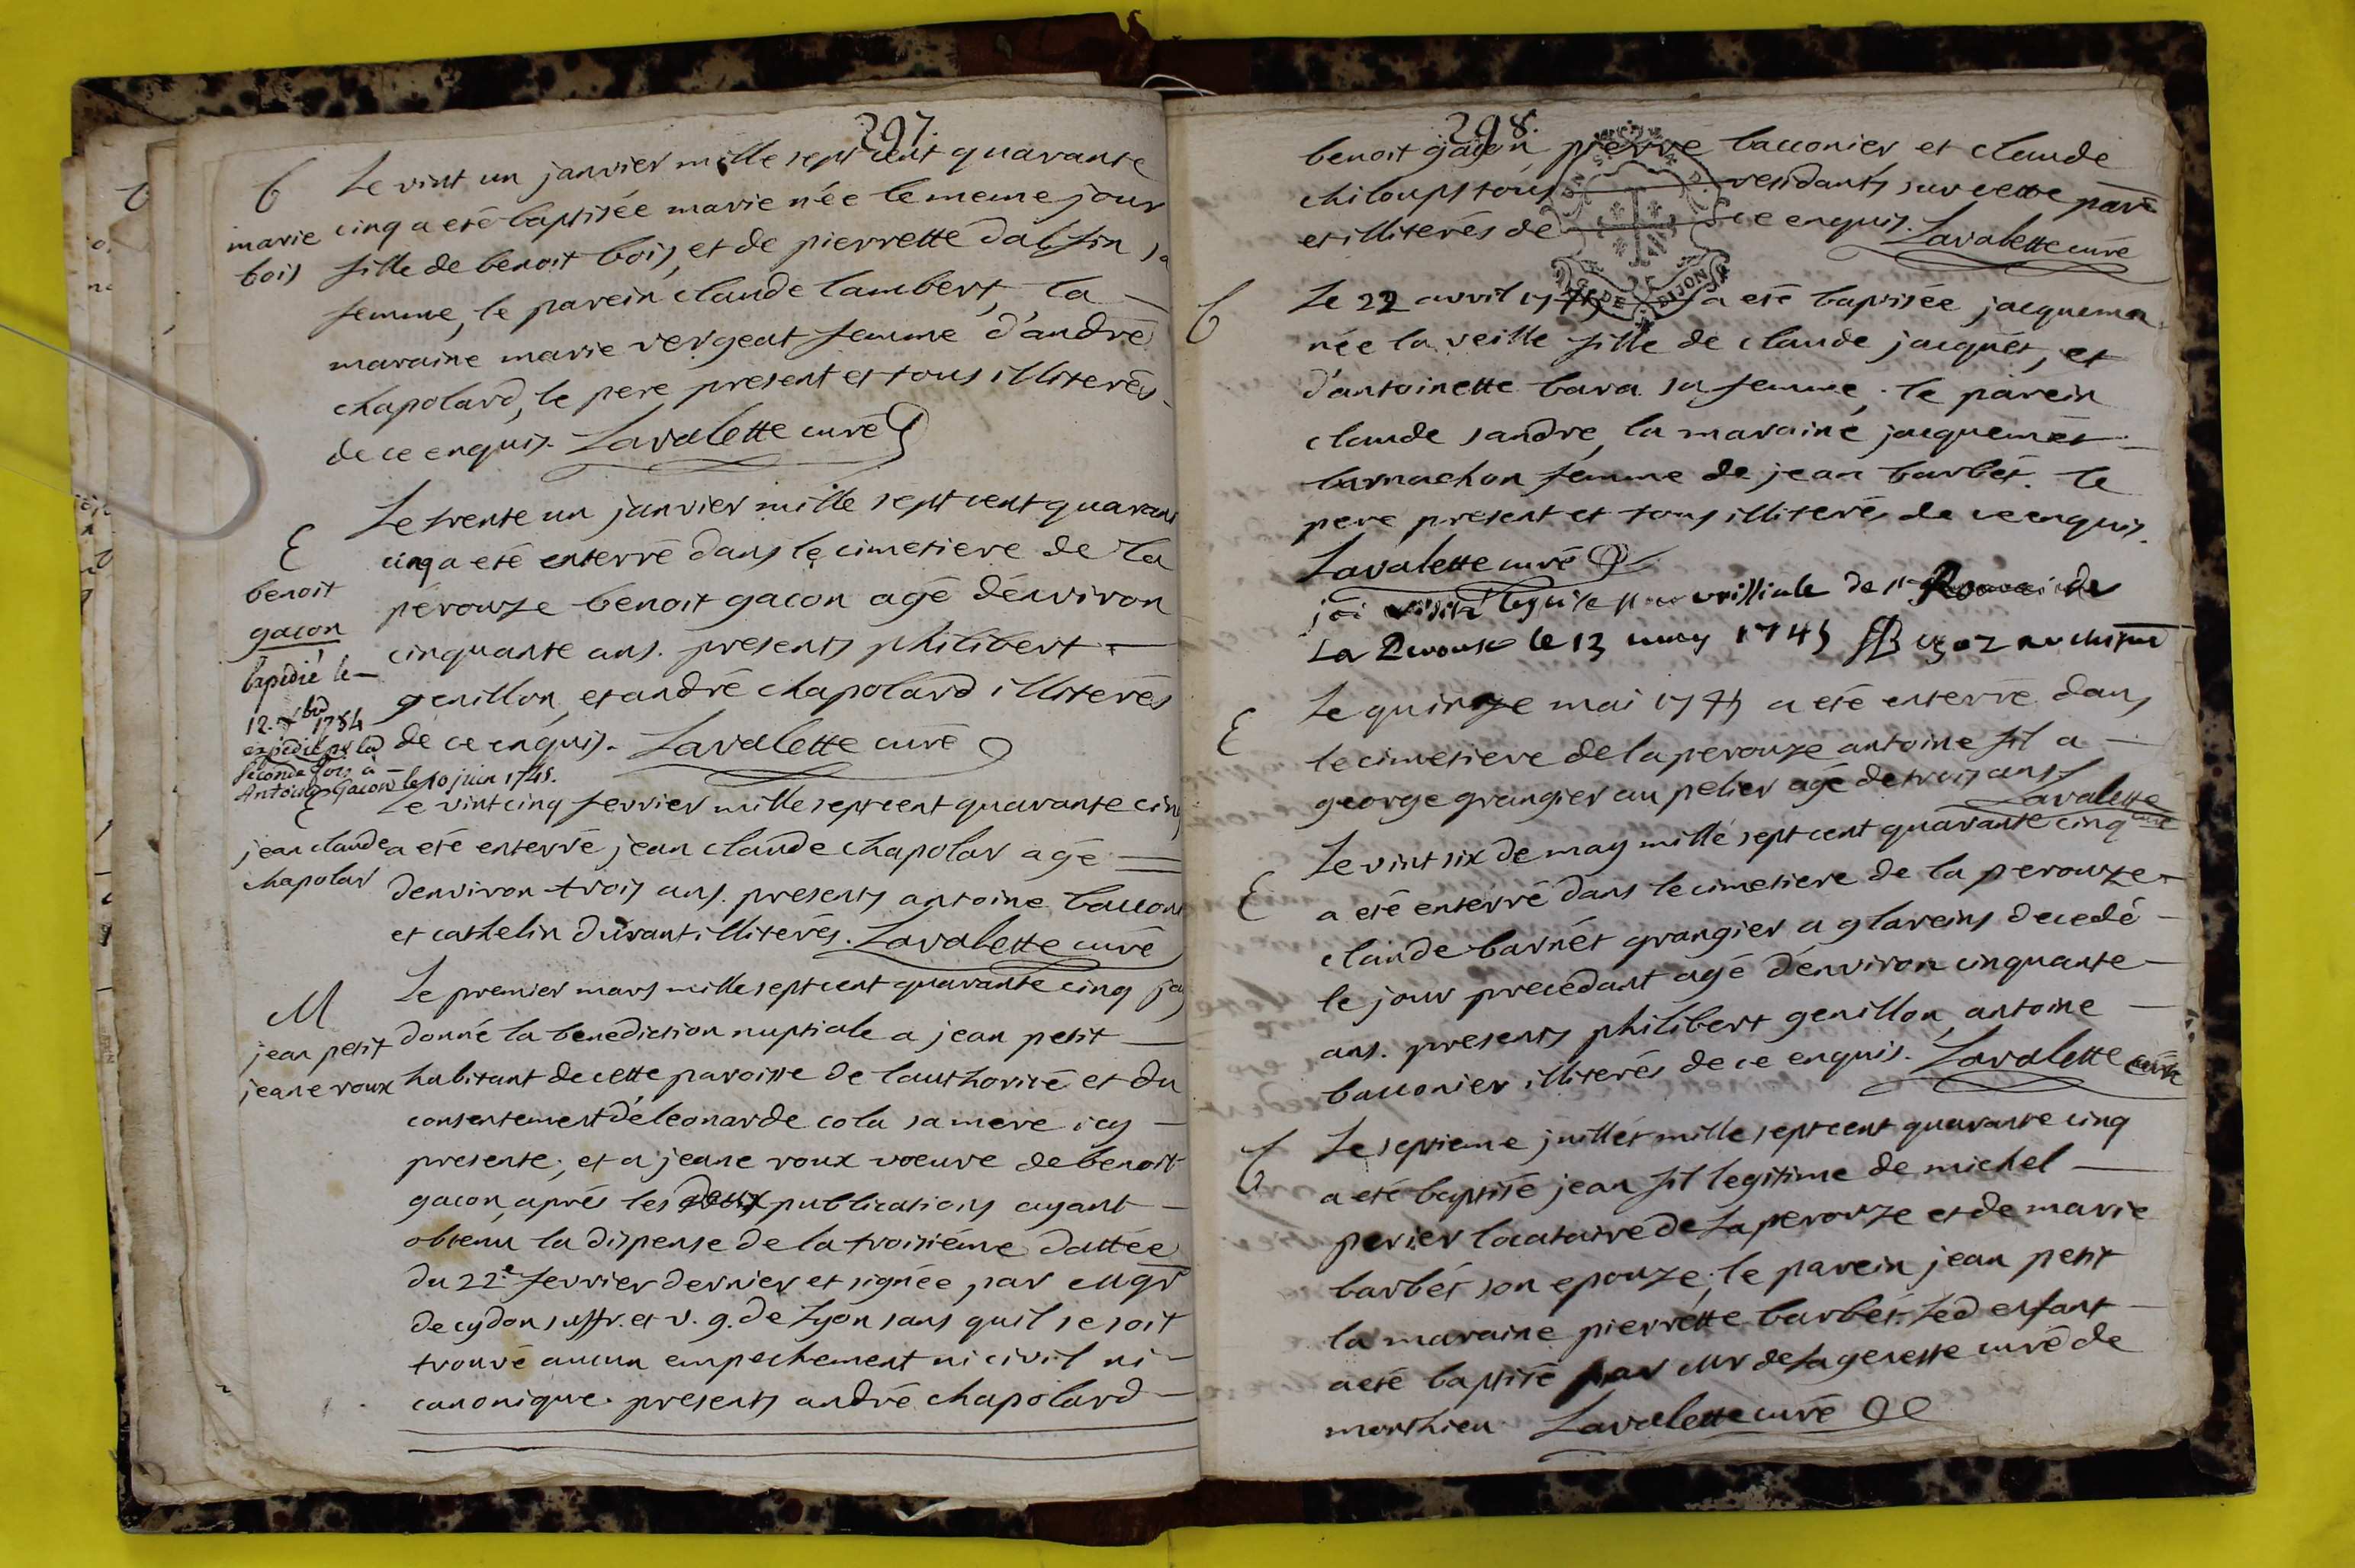 297.
b
marie
bois
Le vint un janvier mille sept cent quarante
cinq a eté baptisée marie née le meme jour
fille de benoit bois, et de pierrette dalfin sa
femme, le parein claude lambert, la
maraine marie vergeat femme d'andré
chapolard, le pere present et tous illiterés
de ce enquis. Lavalette curé
E
benoit
gacon
Expedié le
12. xbre 1754
expedié pr la
seconde fois à
Antoine Gacon le 10 juin 1745.
Le trente un janvier mille sept cent quarante
cinq a eté enterré dans le cimetiere de la
perouze benoit gacon agé d'environ
cinquante ans. presents philibert
genillon, et andré chapolard illiterés
de ce enquis. Lavalette curé
E
jean claude
chapolar
Le vint cinq fevrier mille sept cent quarante cinq
a eté enterré jean claude chapolar agé
denviron trois ans. presents antoine
et cathelin durant illiterés. Lavalette curé
M
jean petit
jeane roux
Le premier mars mille sept cent quarante cinq jay
donné la benediction nuptiale a jean petit
habitant de cette paroisse de lauthorité et du
consentement de leonarde cola sa mere icy
presente, et a jeane roux voeuve de benoit
gacon, aprés les deux publications ayant
obtenu la dispense de la troisiéme dattée
du 22e fevrier dernier et signée par Mgr
de cydon suffr. et v. g. de Lyon sans quil se soit
trouvé aucun empechement ni civil ni
canonique. presents andré chapolard
298.
benoit gacon, pierre bacconier et claude
chiloup tous residants sur cette par
et illiterés de ce enquis. Lavalette curé
DIJON
b
Le 22 avril 1745 a eté baptisée jacquema
née la veille fille de claude jacquet, et
d'antoinette bara sa femme, le parein
claude sandre, la maraine jacquemet
barnachon femme de jean barbet. le
pere present et tous illiterés de ce enquis.
Lavalette curé
jai visité de
La Perouse le 13 may 1745
E
Le quinze mai 1745 a eté enterré dans
le cimetiere de la perouze antoine fil a
george grangier au pelier agé de trois ans. Lavalette
curé
E
Le vint six de may mille sept cent quarante cinq
a eté enterré dans le cimetiere de la perouze
claude barnet grangier a glareins decedé
le jour precedant agé d'environ cinquante
ans. presents philibert genillon, antoine
bacconier illiterés de ce enquis. Lavalette curé
b
Le septieme juillet mille sept cent quarante cinq
a eté baptisé jean fil legitime de michel
perier locataire de Laperouze et de marie
barbet son epouze; le parein jean petit
la maraine pierrette barbet. led enfant
a eté baptisé par Mr de Lagenesse curé de
monthieu. Lavalette curé